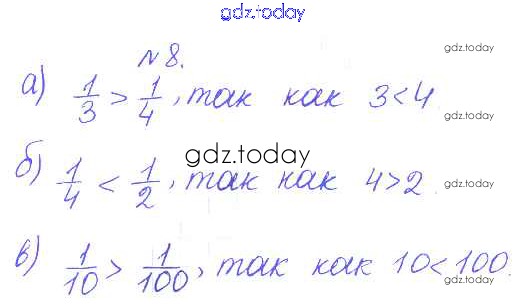 gdz.today
№8.
gdz.today
а) 1/3 > 1/4, так как 3<4.
gdz.today
gdz.today
б) 1/4 < 1/2, так как 4>2.
gdz.today
в) 1/10 > 1/100, так как 10<100.
gdz.today